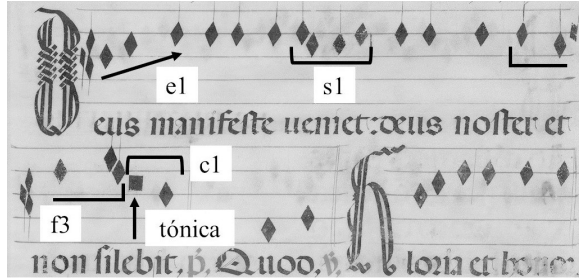 e1 s1
Deus manifeste ueniet: deus noster et
c1
f3 tónica
non silebit, p. Quod, v. Gloria et honor